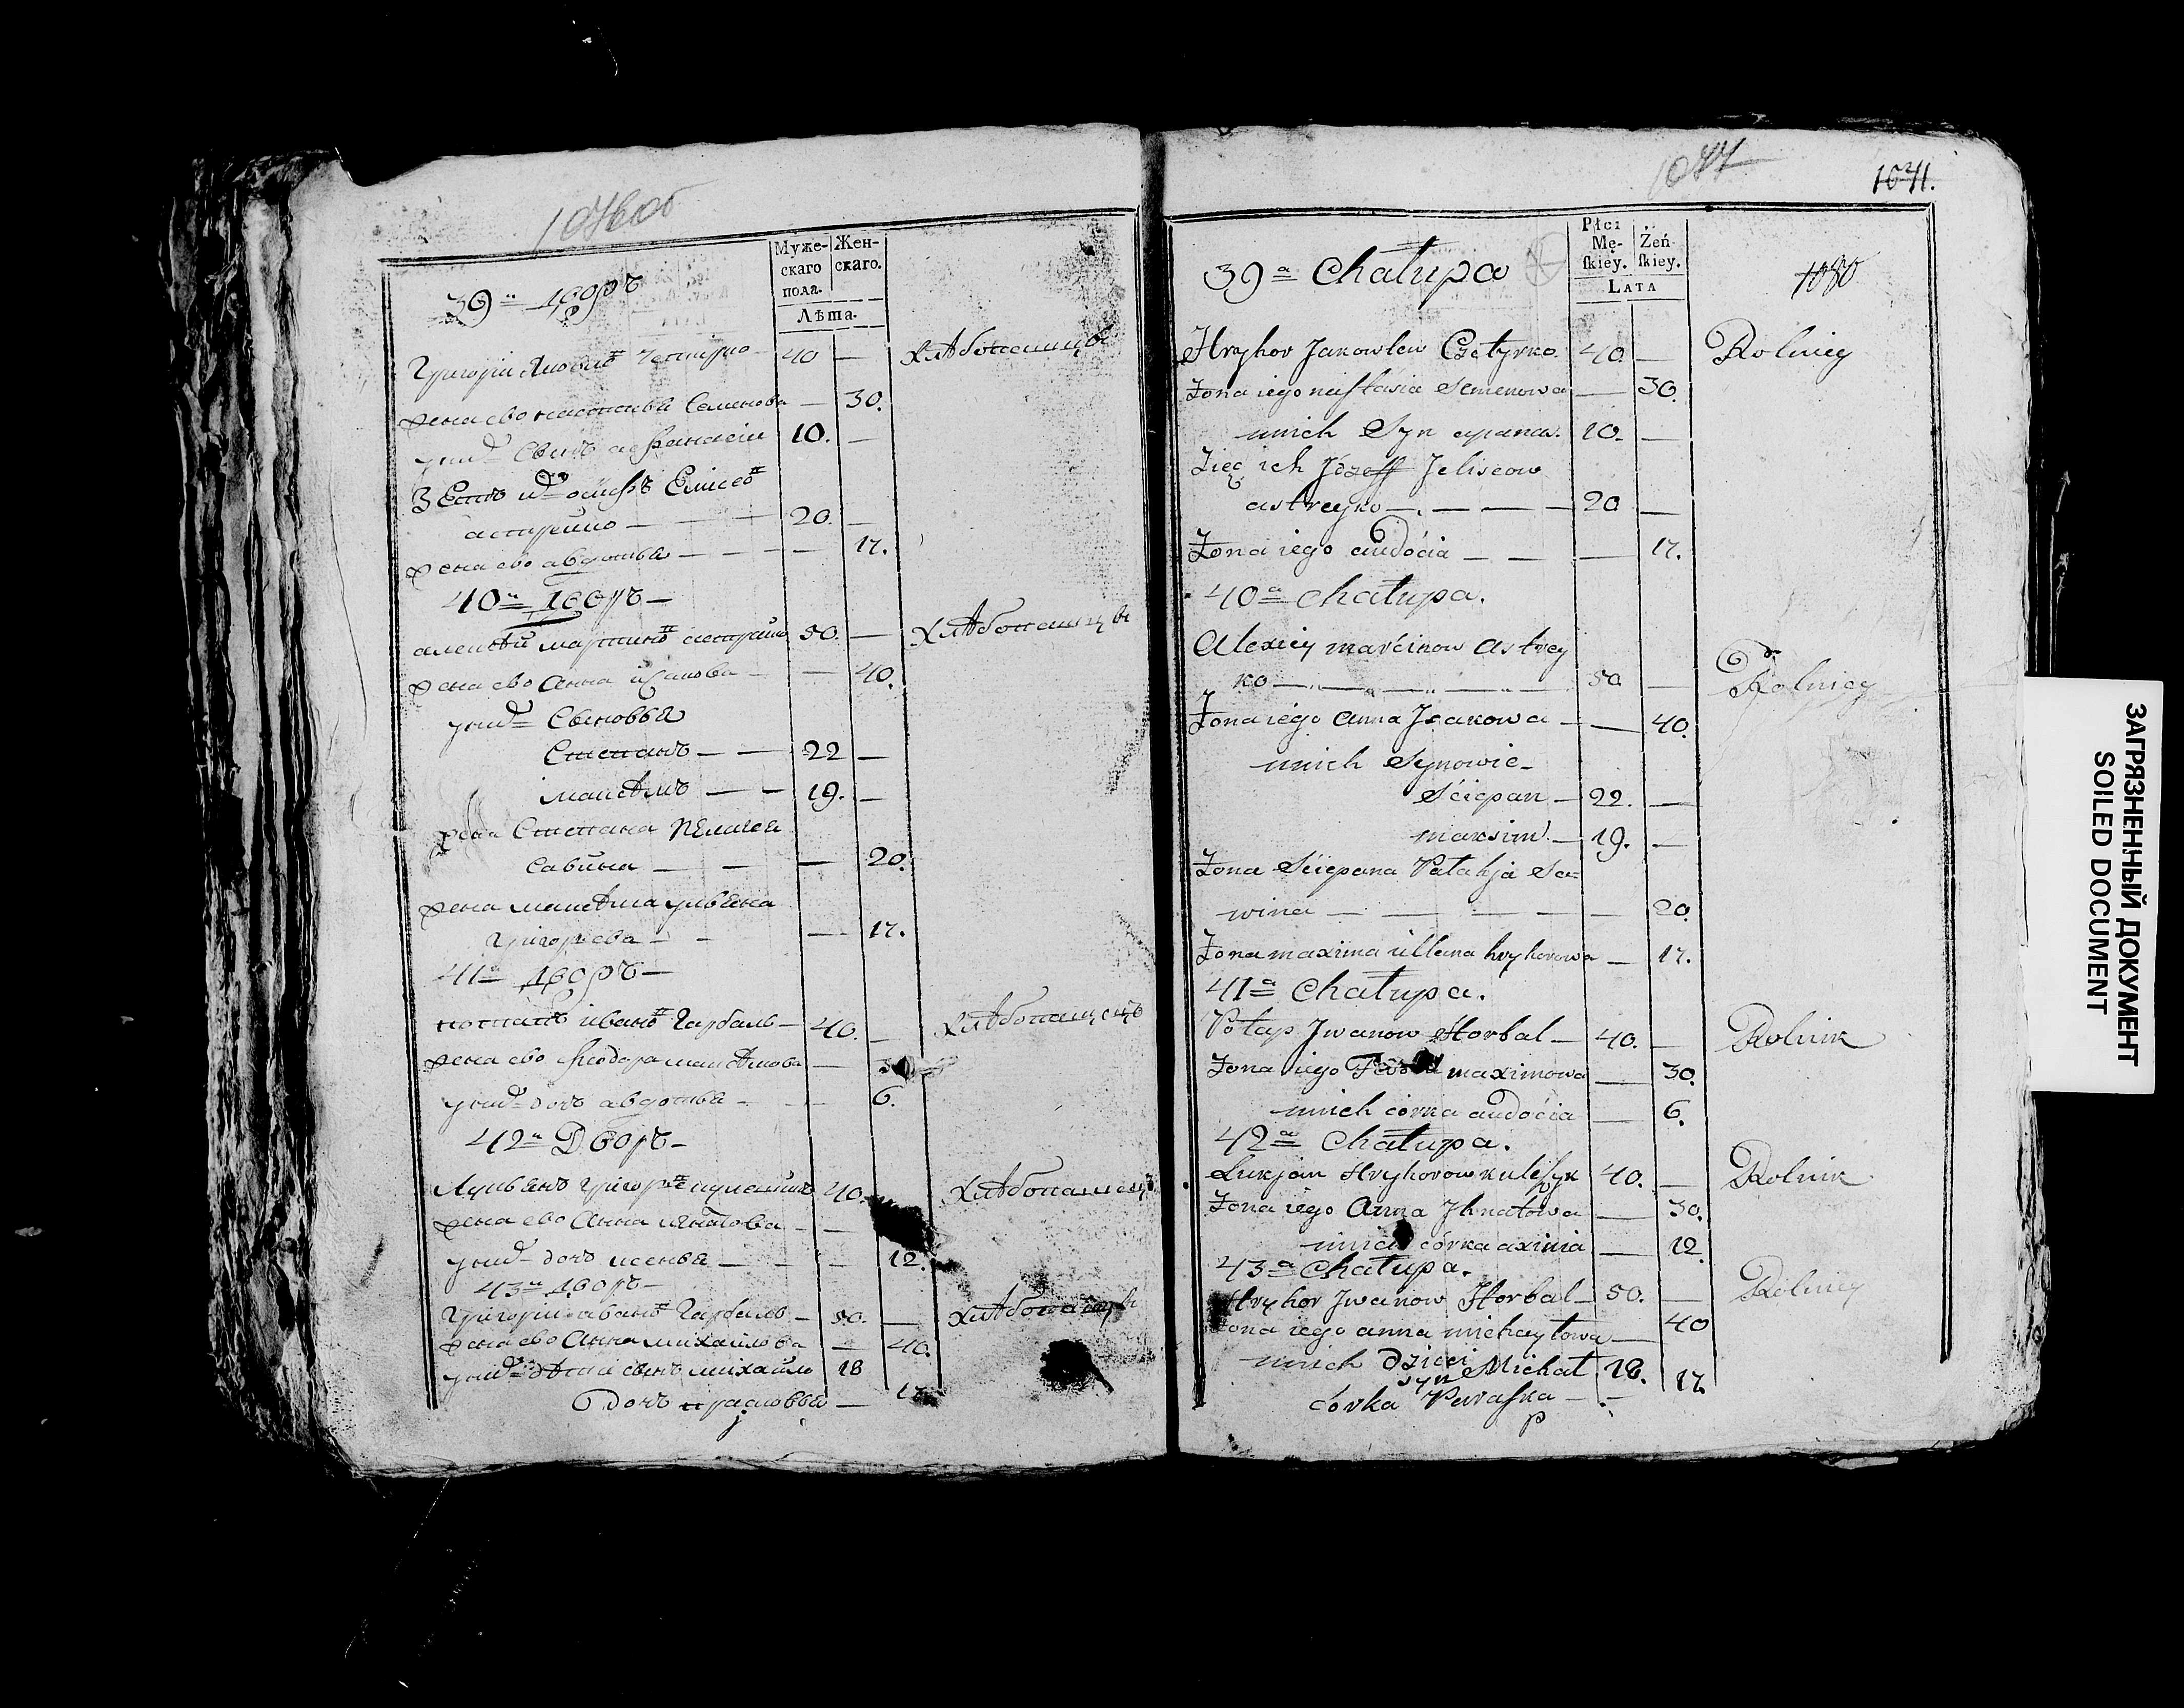 1076об
Муже-
скаго
пола.
Жен-
скаго.
Лѣта.
39й дворъ
Григорiй Яковлевъ Четырко 40 — хлѣбопашцы
жена ево настасья Семенова — 30.
у них Сынъ афанасiи 10. —
Зять их осифъ Елисеевъ
астрейко — 20. —
жена ево авдотья — — — 17.
40й дворъ —
алексѣй мартиновъ астрейко 50. — хлѣбопашцы
жена ево Анна исакова — — 40.
у них Сыновья
Степанъ — — 22 —
максѣмъ — — 19. —
жена Степана Пелагея
Савина — — — 20.
жена максѣма ульяна
григорьева — — — 17.
41й дворъ —
потапъ ивановъ Гарбаль — 40. — хлѣбопашецъ
жена ево феодора максѣмова —
у них дочь авдотья — — 6.
42й Дворъ —
Лукьянъ григорьевъ кулешикъ 40. хлѣбопашецъ
жена ево Анна игнатова — —
у них дочь ксенья — — — 12.
43й дворъ —
Григорiй ивановъ Гарбаль — 50. — хлѣбопашцы
жена ево Анна михайлова — 40.
у них дѣти сынъ михайло 18
дочь прасковья — 17.
1077
1041.
39a Chałupa
Płci
Mę-
skiey.
Żeń
skiey.
Lata
1080
Hryhor Jakowlew Czetyrko 40. — Rolnicy
Żona iego nastasia Semenowa — 30.
unich Syn apanas. 10. —
Zięć ich Józeff Jeliseow
astreyko — — — — 20 —
Żona iego audócia — — — 17.
40a chałupa.
Alexiey marcinow Astrey
ko — — — — — 50. — Rolnicy
Żona iego Anna Jsakowa — — 40.
unich Synowie —
Sciepan — 22. —
maksim. — 19. —
Żona Sciepana Pałahja Sa=
wina — — — — — 20.
Żona maxima ullana hryhorowa — 17.
41a Chałupa.
Potap Jwanow Horbal — 40. — Rolnik
Żona iego maximowa — 30.
unich córka audócia — 6.
42a Chałupa.
Łukjan Hryhorow kuleszyk 40. — Rolnik
Żona iego Anna Jhnatowa — 30.
unich córka axinia — 12.
43a Chałupa.
Hryhor Jwanow Horbal — 50. — Rolnicy
Żona iego anna michayłowa — 40
unich dzieci
syn Michał 18.
córka Paraska — — 17.
ЗАГРЯЗНЕННЫЙ ДОКУМЕНТ
SOILED DOCUMENT